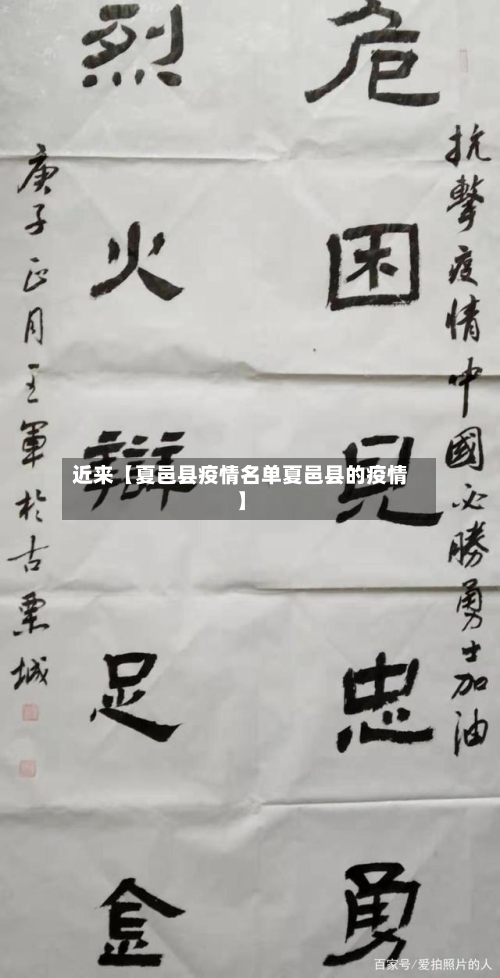 抗擊疫情中國必勝勇士加油
危困見忠勇
烈火辯足金
庚子正月王軍於古栗城
近来【夏邑县疫情名单夏邑县的疫情
】
百家号/爱拍照片的人